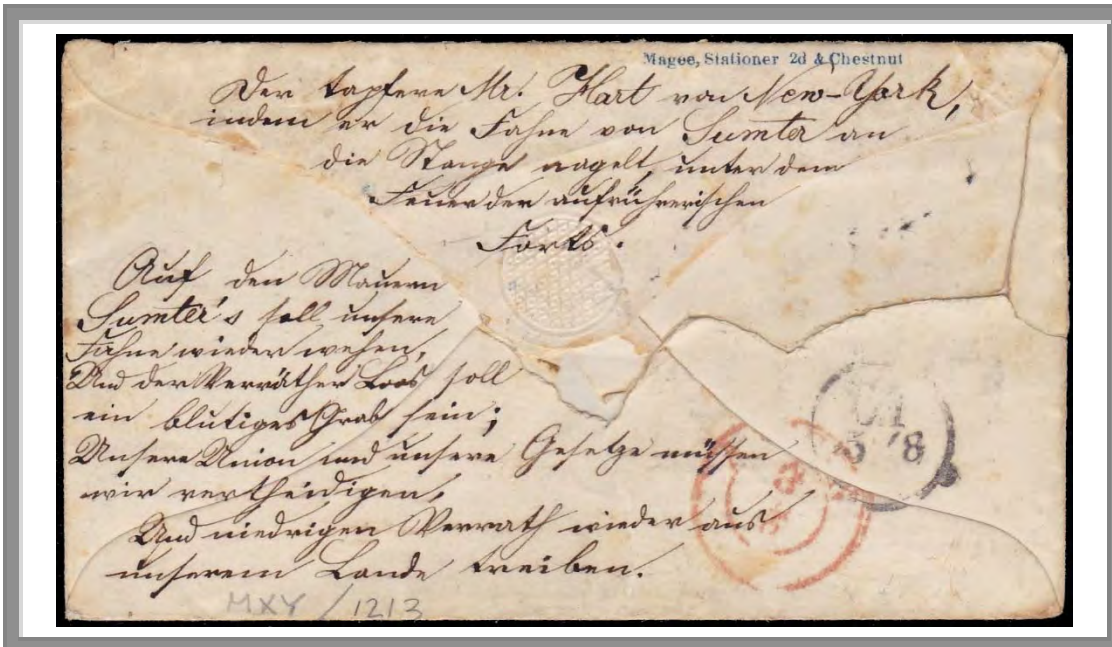 Magee, Stationer 2d & Chestnut
Der tapfere Mr. Hart von New-York,
indem er die Fahne von Sumter an
die Stange nagelt, unter dem
Feuer der aufrührerischen
Forts.
Auf den Mauern
Sumter's soll unsere
Fahne wieder wehen,
Und der Verräther Loos soll
ein blutiges Grab sein;
Unsere Union und unsere Gesetze müssen
wir vertheidigen,
Und niedrigen Verrath wieder aus
unserem Lande treiben.
MXY / 1213